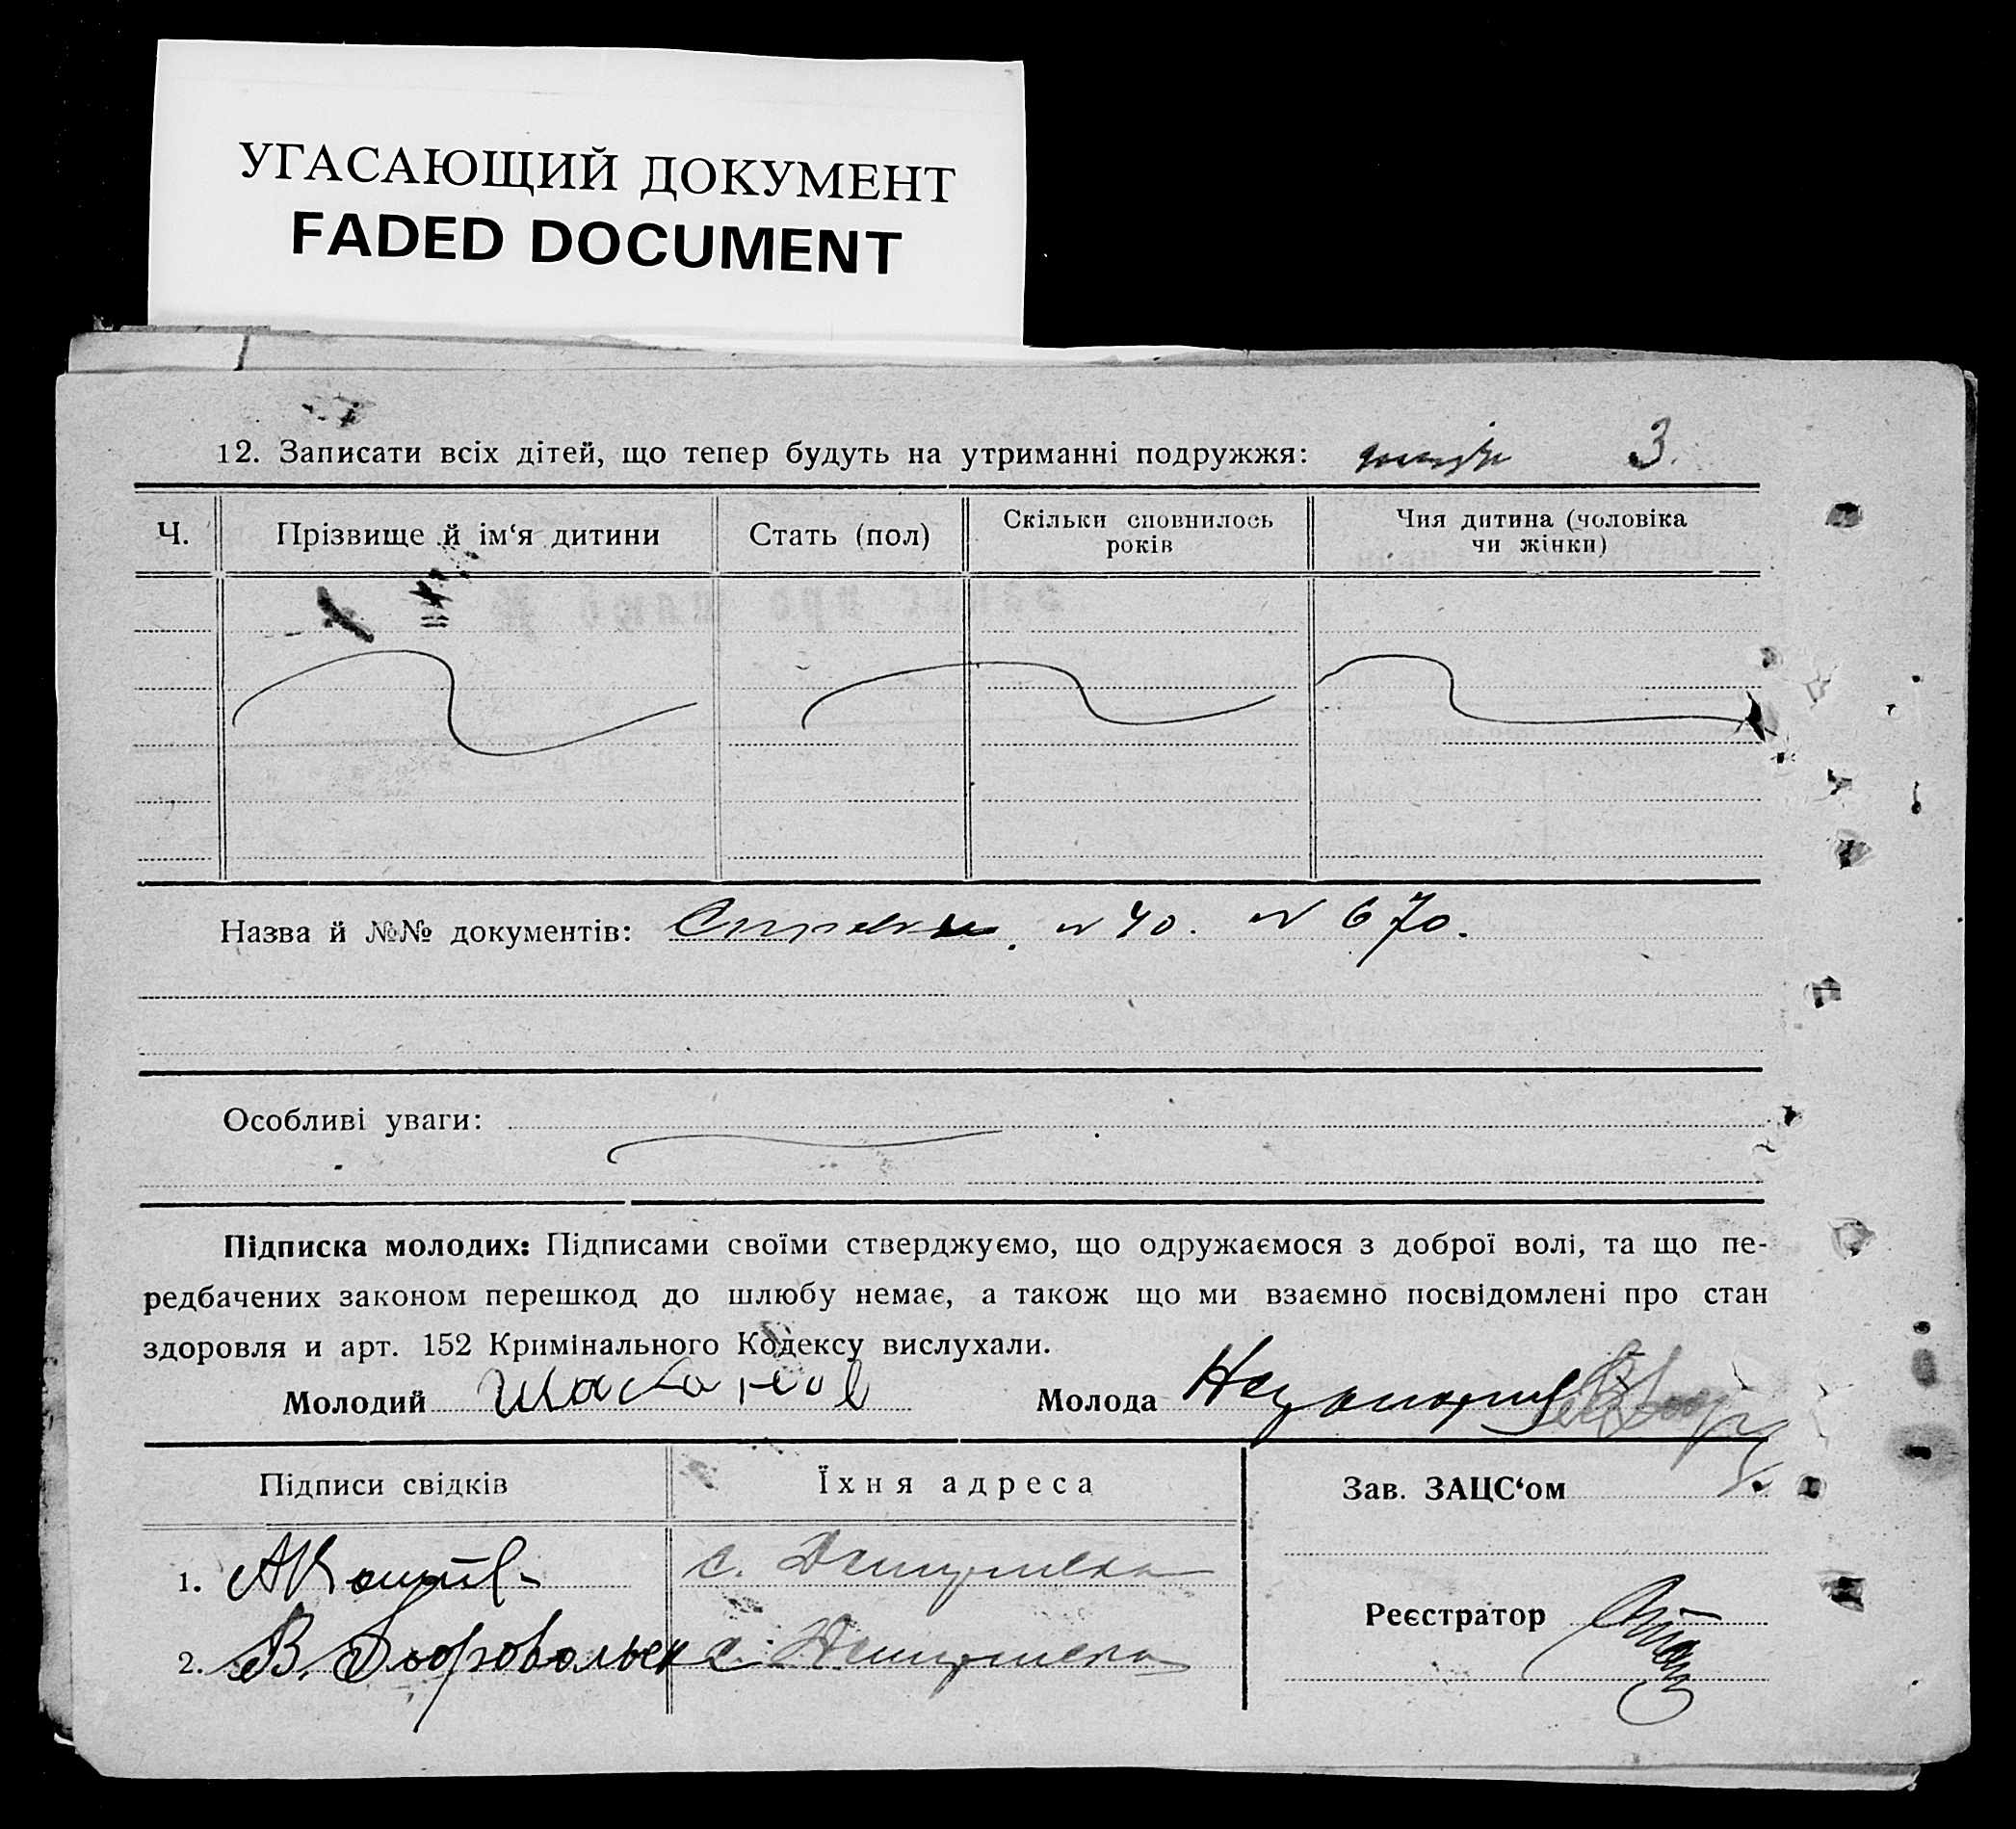 УГАСАЮЩИЙ ДОКУМЕНТ
FADED DOCUMENT
12. Записати всіх дітей, що тепер будуть на утриманні подружжя: 3.
Ч. Прізвище й ім‘я дитини Стать (пол) Скільки сповнилось років Чия дитина (чоловіка чи жінки)
Назва й №№ документів: Справки. N 40. N 670.
Особливі уваги:
Підписка молодих: Підписами своїми стверджуємо, що одружаємося з доброї волі, та що пе-
редбачених законом перешкод до шлюбу немає, а також що ми взаємно посвідомлені про стан
здоровля и арт. 152 Кримінального Кодексу вислухали.
Молодий Молода
Підписи свідків Їхня адреса Зав. ЗАЦС‘ом
1. с.
Реєстратор
2. В. с.